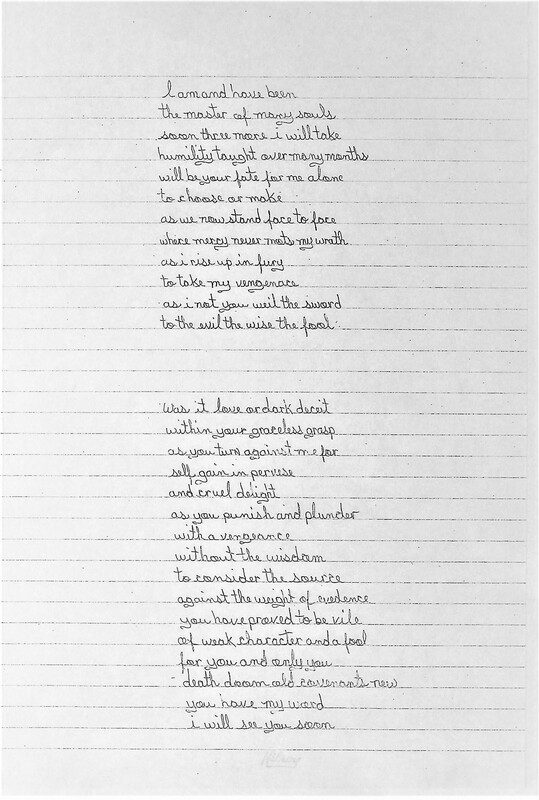 I am and have been
the master of many souls
soon three more i will take
humility taught over many months
will be your fate for me alone
to choose or make
as we now stand face to face
where mercy never mets my wrath
as i rise up in fury
to take my vengenace
as i not you weil the sword
to the evil the wise the fool.
Was it love or dark deceit
within your graceless grasp
as you turn against me for
self gain in pervise
and cruel delight
as you punish and plunder
with a vengeance
without the wisdom
to consider the source
against the weight of evedence
you have proved to be vile
of weak character and a fool
for you and only you
death doom old covenants new
you have my word
i will see you soon